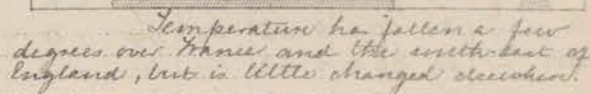 Temperature has fallen a few
degrees over France and the south-east of
England, but is little changed elsewhere.